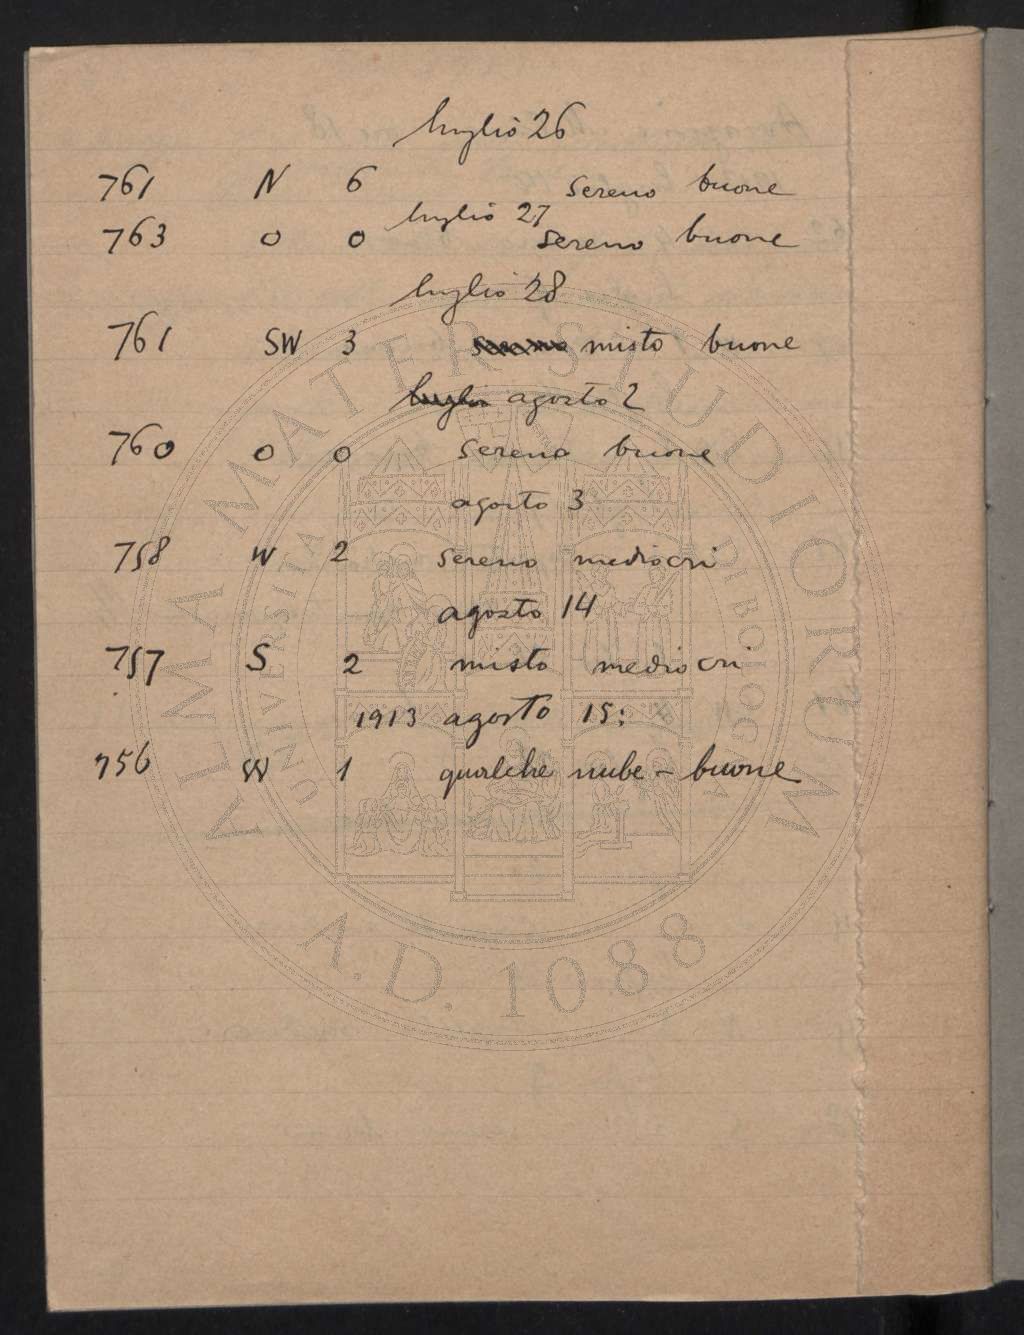 luglio 26
761 N 6 sereno buone
luglio 27
763 0 0 sereno buone
luglio 28
761 SW 3 sereno misto buone
luglio agosto 2
760 0 0 sereno buone
agosto 3
758 W 2 sereno mediocri
agosto 14
757 S 2 misto mediocri
1913 agosto 15:
756 W 1 qualche nube - buone
ALMA MATER STUDIORUM
A.D. 1088
UNIVERSITA DI BOLOGNA